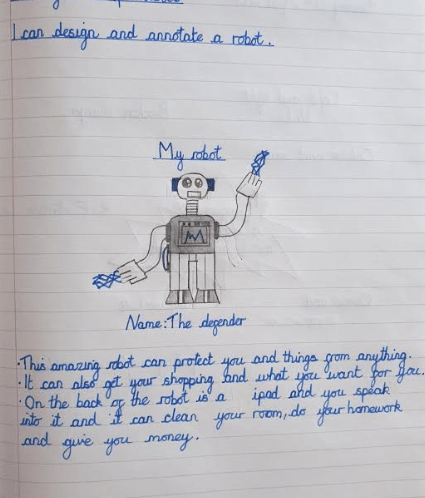 I can design and annotate a robot.
My robot
Name: The defender
·This amazing robot can protect you and things from anything.
·It can also get your shopping and what you want for you.
·On the back of the robot is a ipad and you speak
into it and it can clean your room, do your homework
and give you money.